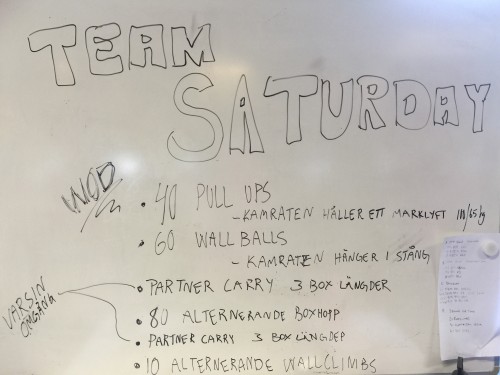 TEAM
SATURDAY
WOD
• 40 PULL UPS
- KAMRATEN HÅLLER ETT MARKLYFT 111/65kg
• 60 WALLBALLS
- KAMRATEN HÄNGER I STÅNG
VARSIN
• PARTNER CARRY 3 BOX LÄNGDER
• 80 ALTERNERANDE BOXHOPP
• PARTNER CARRY 3 BOX LÄNGDER
• 10 ALTERNERANDE WALLCLIMBS